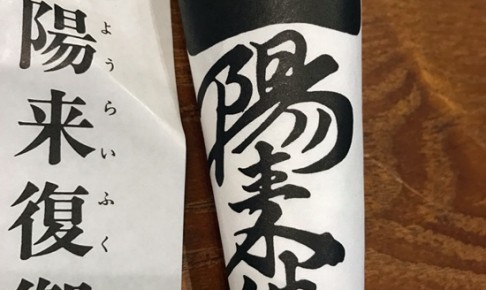 陽来復御
ようらいふく
陽来復